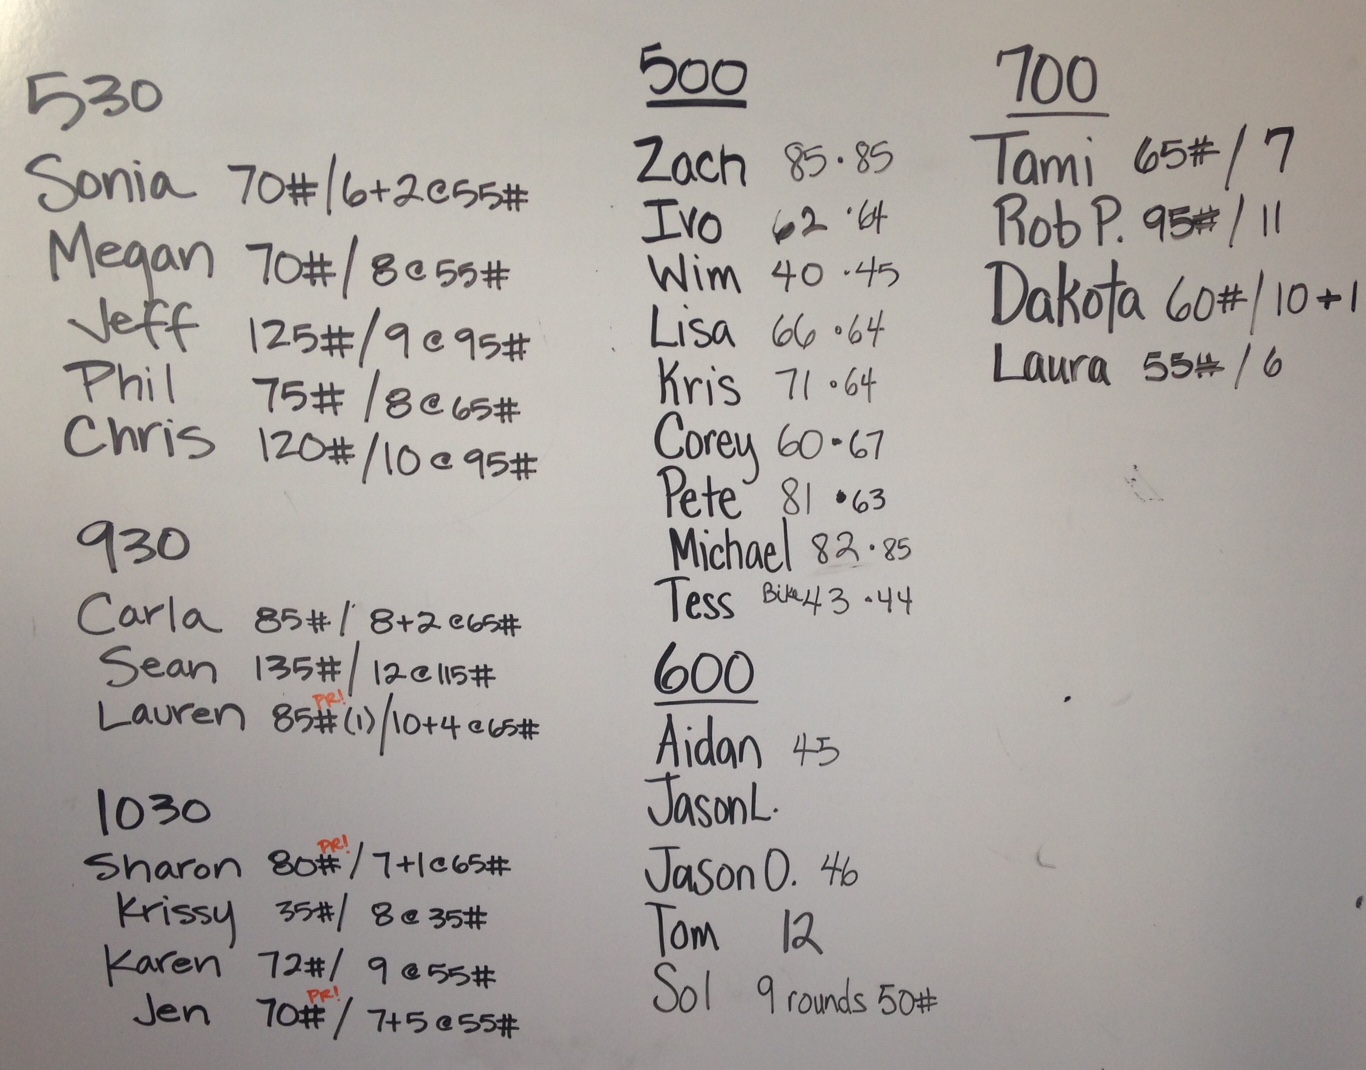 530
Sonia 70#/6+2@55#
Megan 70#/ 8@55#
Jeff 125#/9@95#
Phil 75# /8@65#
Chris 120#/10@95#
930
Carla 85#/ 8+2@65#
Sean 135#/ 12@115#
PR!
Lauren 85#(1)/10+4@65#
1030
PR!
Sharon 80#/ 7+1@65#
Krissy 35#/ 8@35#
Karen 72#/ 9@55#
PR!
Jen 70#/ 7+5@55#
500
Zach 85·85
Ivo 62·64
Wim 40·45
Lisa 66·64
Kris 71·64
Corey 60·67
Pete 81·63
Michael 82·85
Tess Bike 43·44
600
Aidan 45
Jason L.
Jason O. 46
Tom 12
Sol 9 rounds 50#
700
Tami 65#/ 7
Rob P. 95#/ 11
Dakota 60#/ 10+1
Laura 55#/ 6